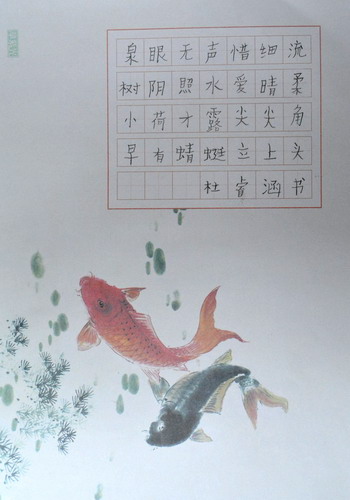 泉眼无声惜细流
树阴照水爱晴柔
小荷才露尖尖角
早有蜻蜓立上头
杜睿涵书